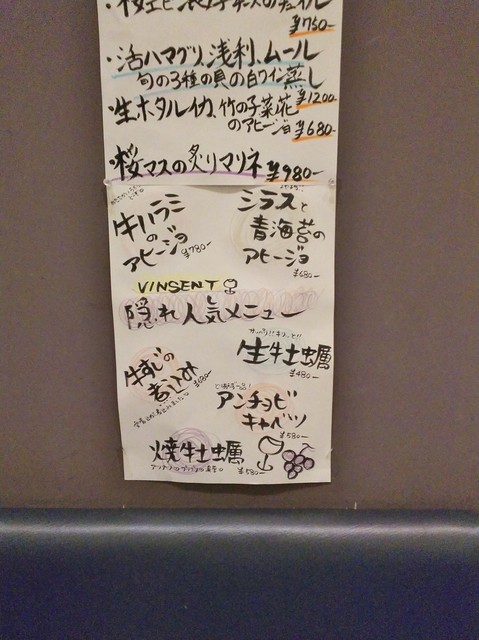 ¥750-
・活ハマグリ、浅利、ムール
旬の3種の貝の白ワイン蒸し
¥1200-
・生ホタルイカ、竹の子菜花
のアヒージョ ¥680-
・桜マスの炙りマリネ ¥980-
牛ハラミ
の
アヒージョ ¥780-
シラスと
青海苔の
アヒージョ
¥680-
VINSENT
隠れ人気メニュー
生牡蠣
¥480-
牛すじの
煮込み
¥680-
アンチョビ
キャベツ
¥580-
焼牡蠣
¥580-